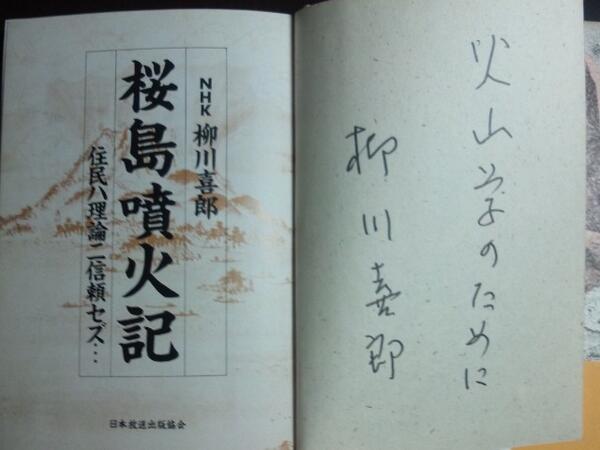 NHK 柳川喜郎
桜島噴火記
住民ハ理論ニ信頼セズ…
日本放送出版協会
火山学のために
柳川喜郎